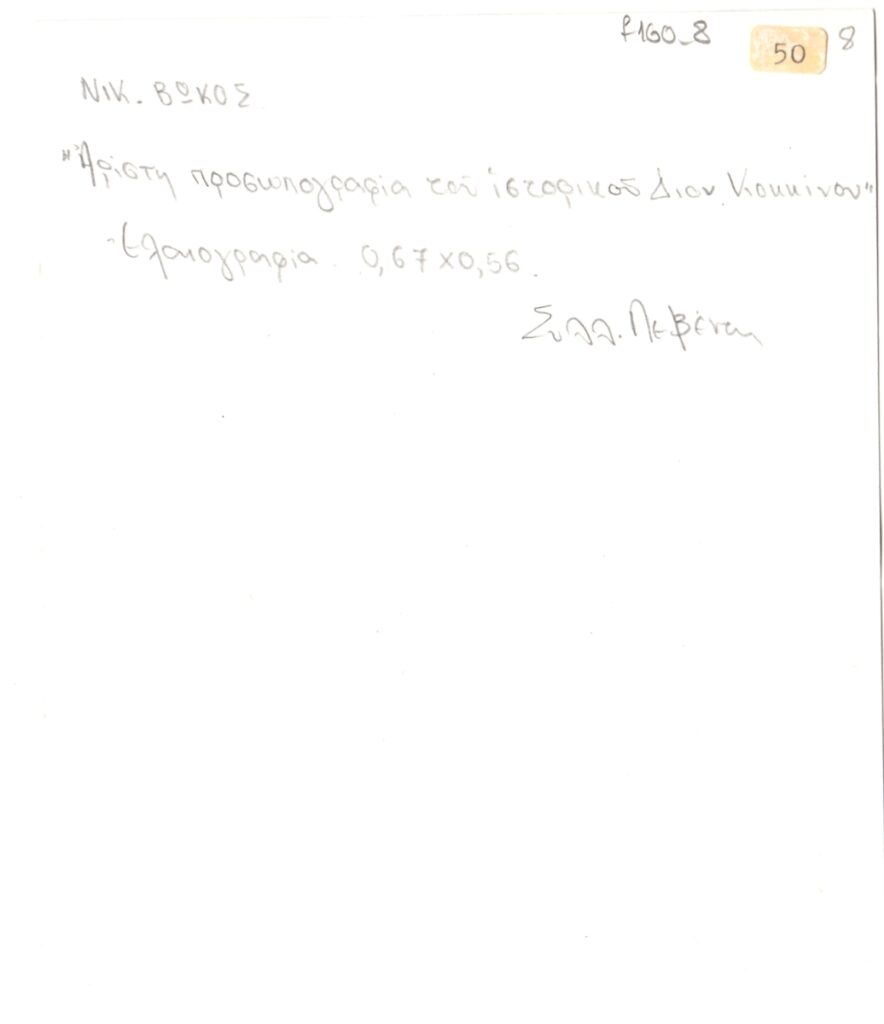 f160_8 50 8
ΝΙΚ. ΒΩΚΟΣ
"Ἀρίστη προσωπογραφία τοῦ ἱστορικοῦ Διον. Κοκκίνου"
Ἐλαιογραφία. 0,67 x 0,56.
Συλλ. Λεβέντη